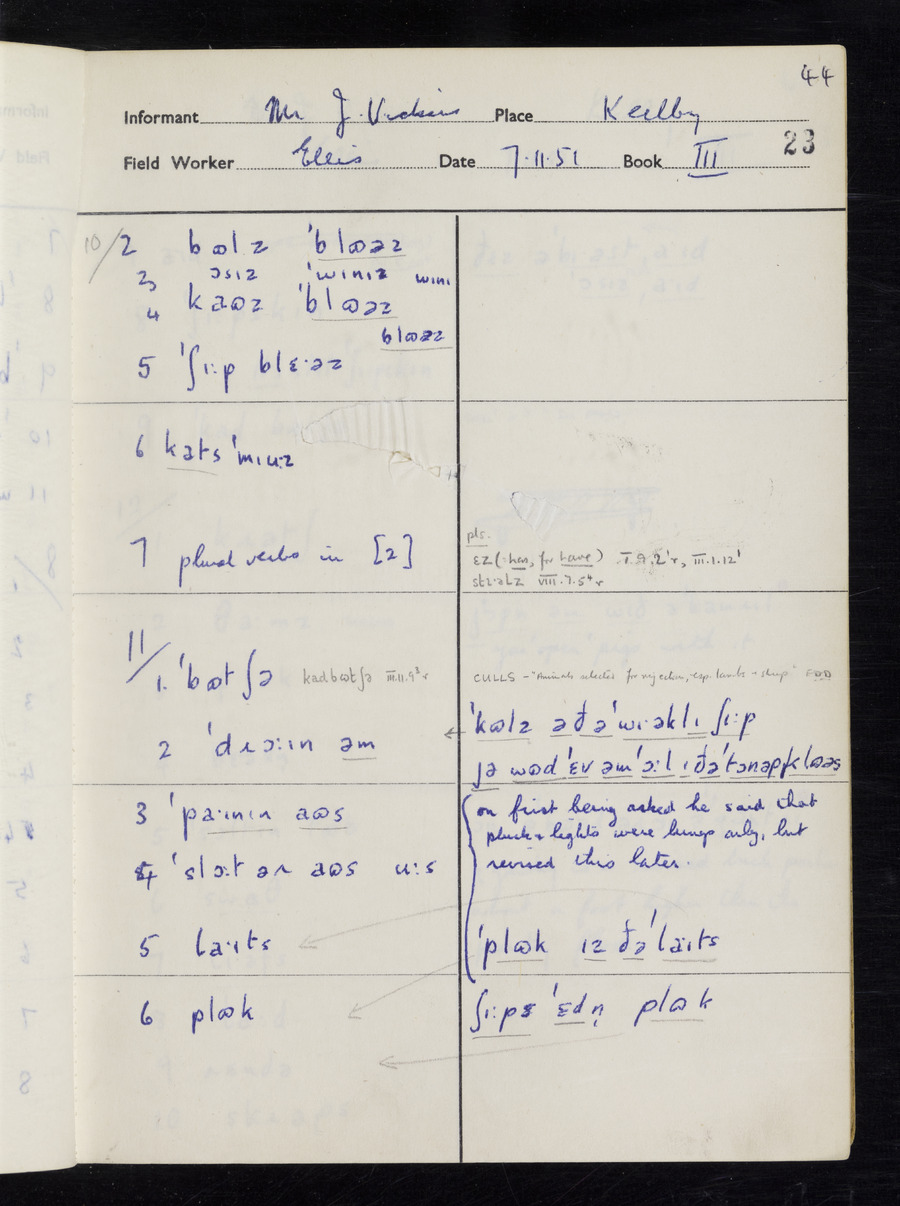 44
Informant Mr J. Vickers Place Keelby
Field Worker Ellis Date 7.11.51 Book III 23
10/2 bʊlz ˈblʊəz
3 ɔsɪz ˈwɪnɪz wɪnɪ
4 kaʊz ˈblʊəz
blʊəz
5 ˈʃɪ:p blɛ:əz
6 kats ˈmɪu:z
7 plural verbs in [z]
pls.
ɛz (: has, for have) I.9.2ˈr, III.1.12ˈ
VIII.7.5⁴r
11/1. ˈbʊtʃə kadbʊtʃə III.11.9³r
CULLS – "Animals selected for rejection, esp. lambs + sheep"
2 ˈdɹɔ:ɪn əm
ˈkʊlz əðəˈwɪ:əklɪ ʃɪ:p
jə wʊdˈɛv əmˈɔ:l ɪðəˈtɔnəpkləəs
3 ˈpa:ɪnɪn aʊs
on first being asked he said that
pluck + lights were lungs only, but
revised this later.
4 ˈslɔ:təɹ aʊs u:s
5 la:ɪts
ˈplʊk ɪz ðəˈla:ɪts
6 plʊk
ʃɪ:ps ˈɛdn̩ plʊk